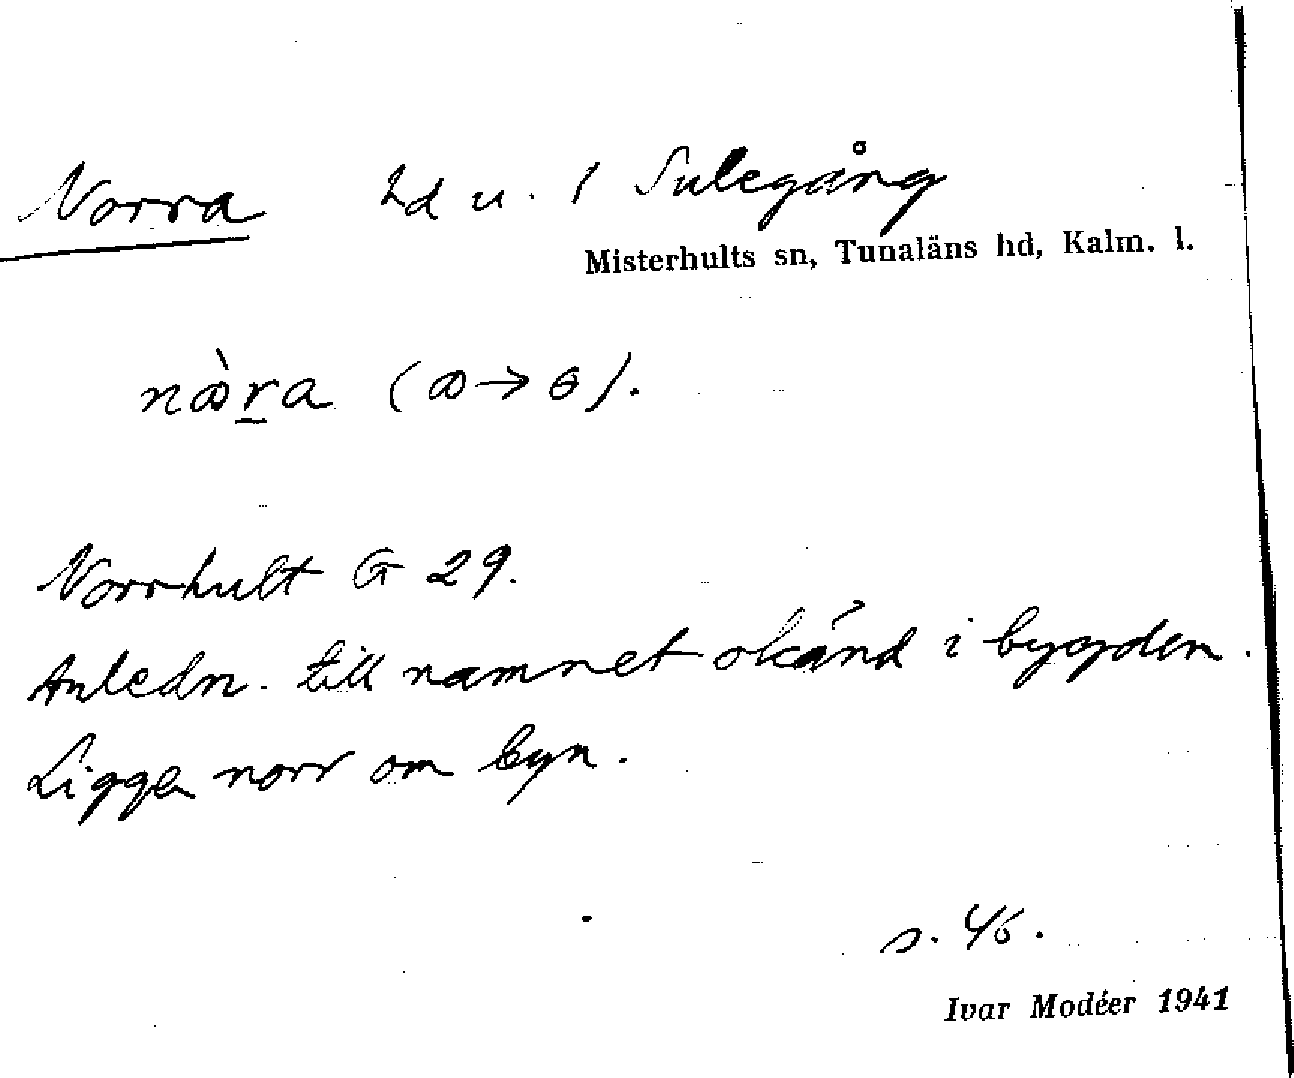 Norra hd u. 1 Sulegång
Misterhults sn, Tunaläns hd, Kalm. l.
nꝏ̀ra (ꝏ→ɵ).
Norrhult G 29.
Anledn. till namnet okänd i bygden.
Ligger norr om byn.
s. 46.
Ivar Modéer 1941